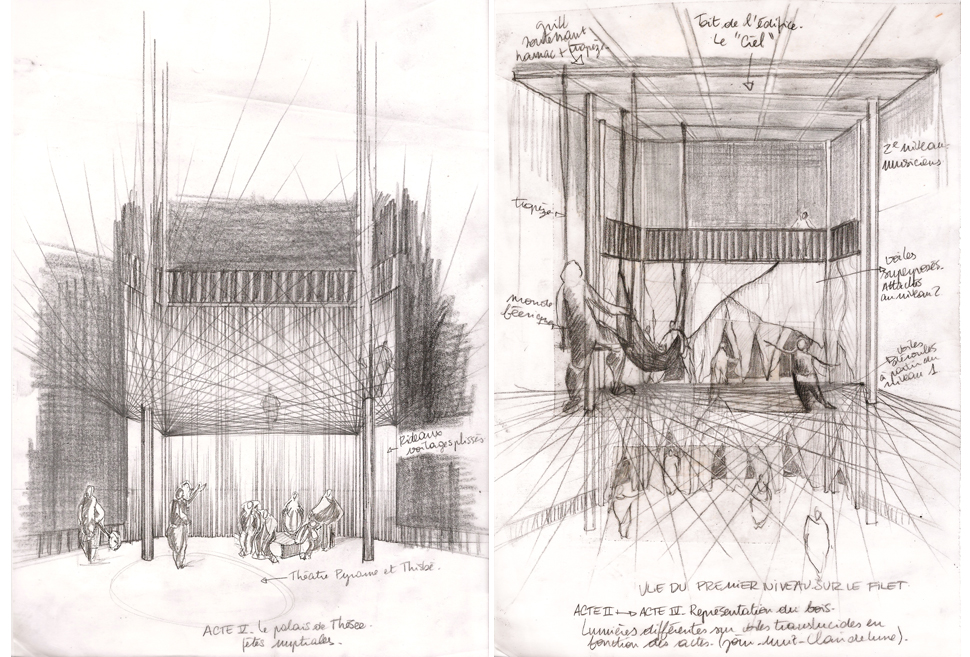 Rideaux
voilages plissés
Théâtre Pyrame et Thisbé.
ACTE V. Le palais de Thésée.
fêtes nuptiales.
grill
soutenant
hamac + trapèze.
Toit de l'édifice.
Le "Ciel"
2e niveau
musiciens
trapèze
voiles
superposés
Attachés
au niveau 2
monde
féerique
voiles
déroulés
à partir du
niveau 1
VUE DU PREMIER NIVEAU SUR LE FILET
ACTE II → ACTE IV. Représentation du bois.
Lumières différentes sur voiles translucides en
fonction des actes. (jour-nuit-Clair de lune).